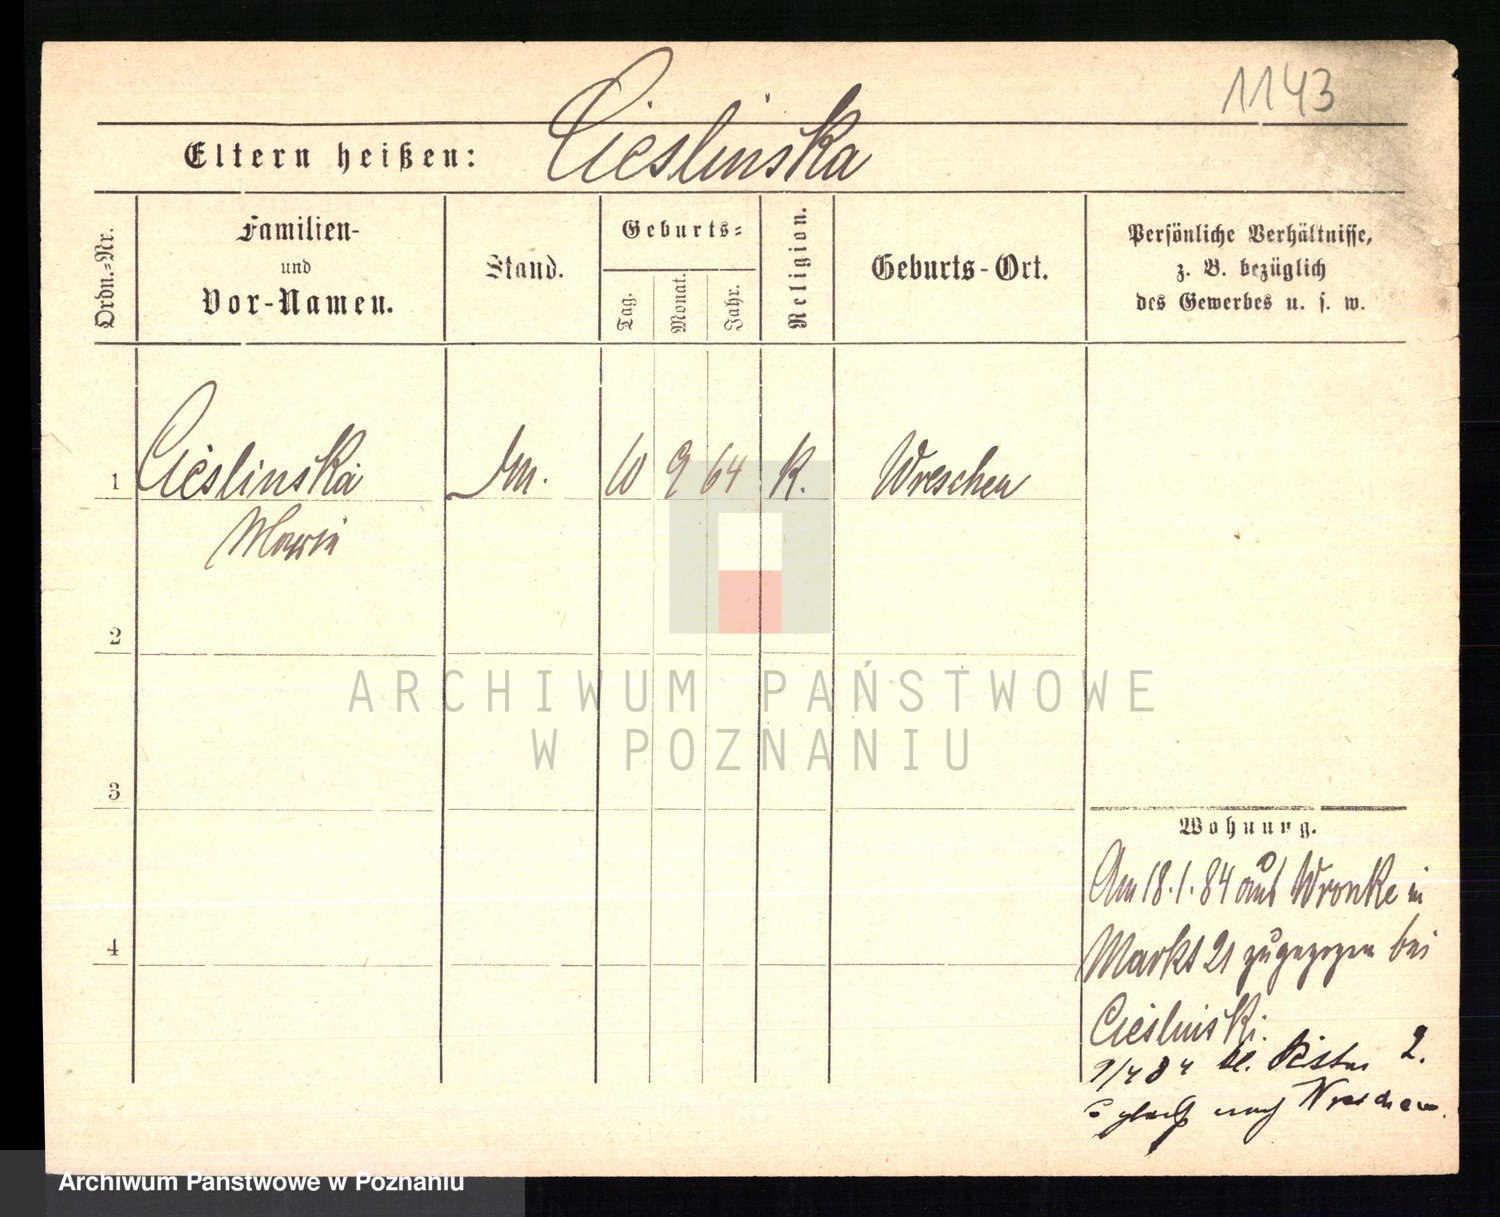 1143
Eltern heißen: Cieslinska
Ordn.-Nr.
Familien-
und
Vor-Namen.
Stand.
Geburts-
Tag.
Monat.
Jahr.
Religion.
Geburts-Ort.
Persönliche Verhältnisse,
z. B. bezüglich
des Gewerbes u. s. w.
1 Cieslinska 10 9 64 K. Wreschen
Maria
2
ARCHIWUM PAŃSTWOWE
W POZNANIU
3
Wohnung.
Am 18.1.84 aus Wronke in
4
Markt 21 zugezogen bei
Cieslinski.
9/4 84 kl. 2.
nach Wreschen.
Archiwum Państwowe w Poznaniu